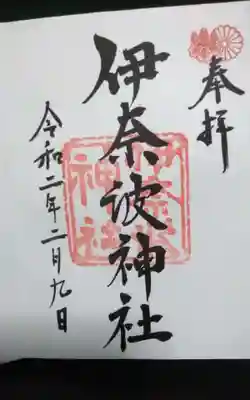 奉拝
伊奈波神社
令和二年二月九日
伊奈波
神社